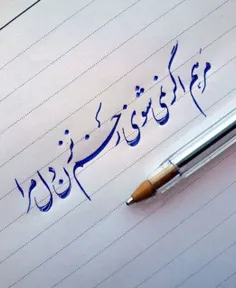 مرهم اگر نمی شوی زخم نزن دل مرا